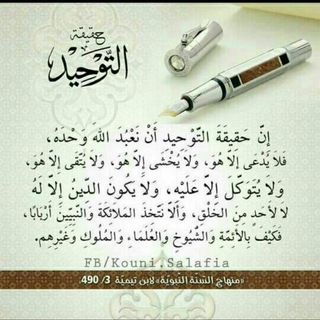 حقيقة
التَّوْحِيْد
إِنَّ حَقِيقَةَ التَّوْحِيدِ أَنْ نَعْبُدَ اللهَ وَحْدَهُ،
فَلاَ يُدْعَى إِلاَّ هُوَ، وَلاَ يُخْشَى إِلاَّ هُوَ، وَلاَ يُتَّقَى إِلاَّ هُوَ،
وَلاَ يُتَوَكَّلَ إِلاَّ عَلَيْهِ، وَلاَ يَكُونَ الدِّينُ إِلاَّ لَهُ
لاَ لأَحَدٍ مِنَ الخَلْقِ، وَأَلاَّ نَتَّخِذَ المَلاَئِكَةَ وَالنَّبِيِّينَ أَرْبَابًا،
فَكَيْفَ بِالأَئِمَّةِ وَالشُّيُوخِ وَالعُلَمَاءِ وَالمُلُوكِ وَغَيْرِهِم.
FB/Kouni.Salafia
«منهاج السُّنَّة النَّبويَّة» لابن تيميَّة 3/ 490